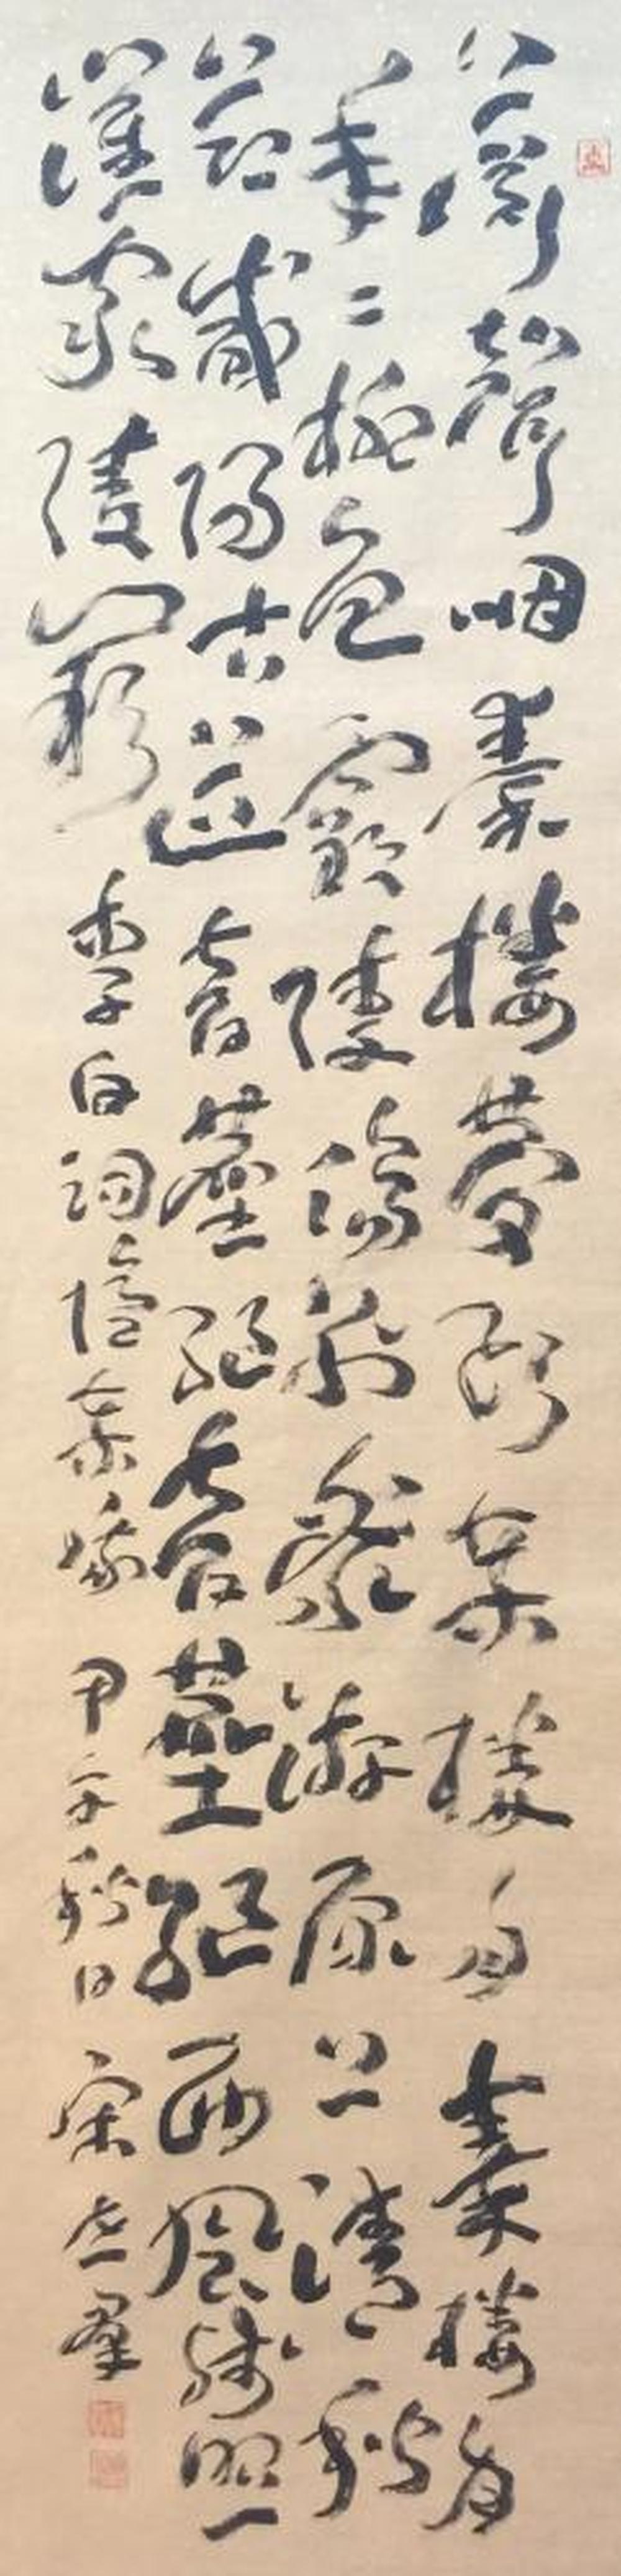 簫聲咽秦樓夢斷秦樓月秦樓月
年々柳色霸陵傷別樂游原上清秋
節咸陽古道音塵絕音塵絕西風殘照
漢家陵闕 李白詞憶秦娥 甲子秋日 宋群